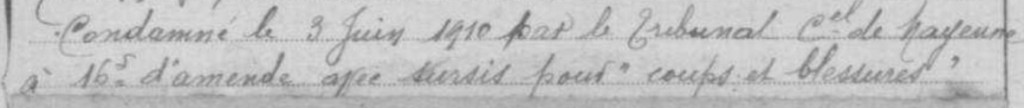 Condamné le 3 Juin 1910 par le Tribunal C.el de Mayenne
à 16f d'amende avec sursis pour "coups et blessures"